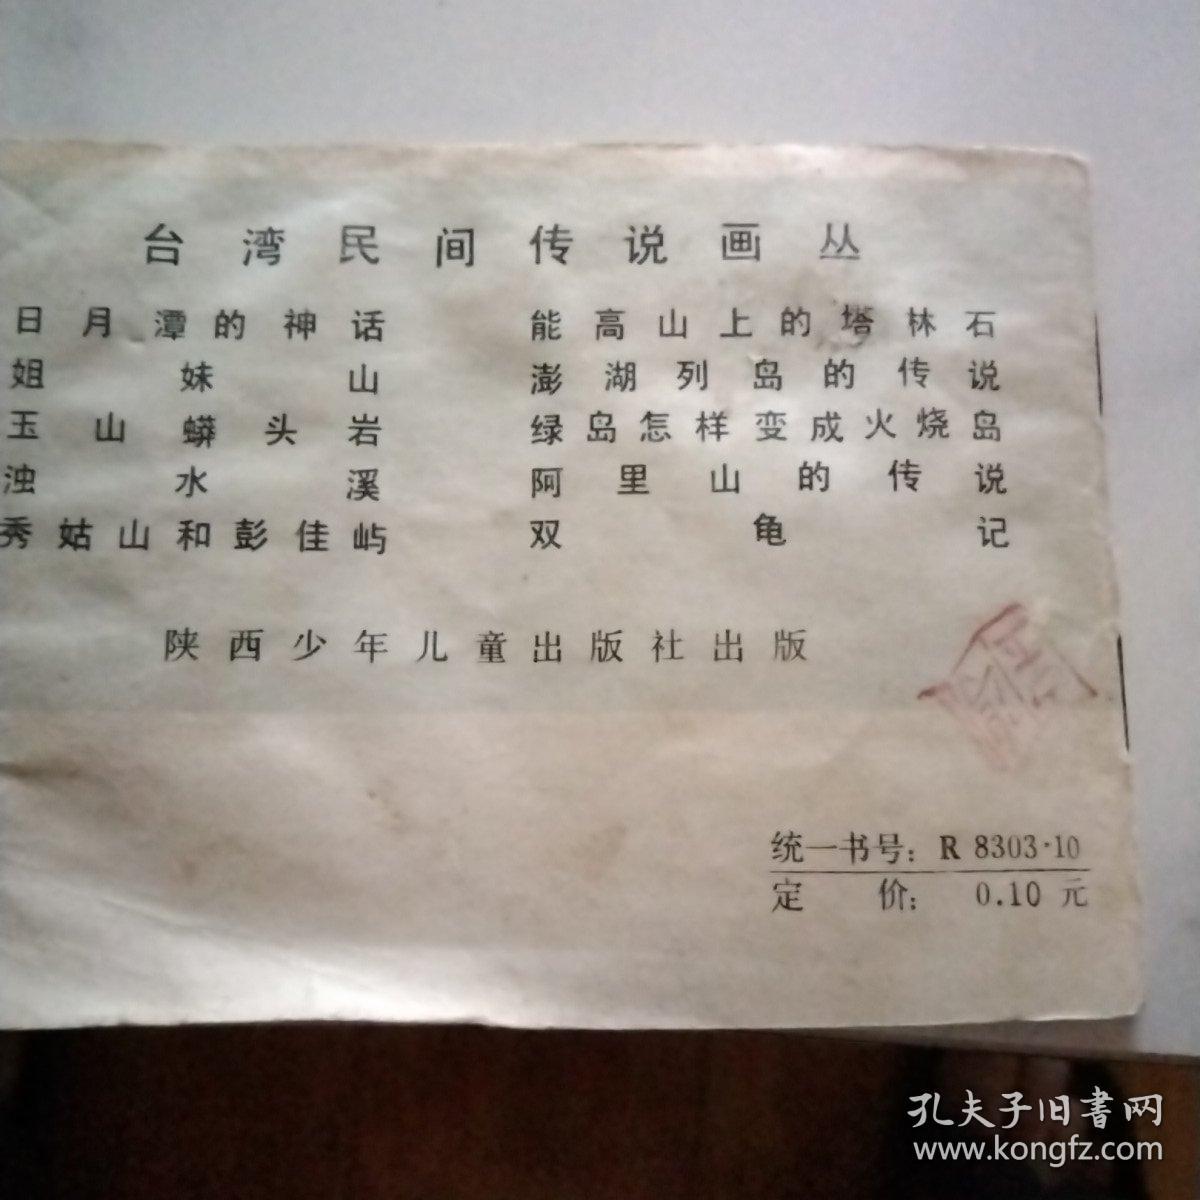 台湾民间传说画丛
日月潭的神话
能高山上的塔林石
姐妹山
澎湖列岛的传说
玉山蟒头岩
绿岛怎样变成火烧岛
浊水溪
阿里山的传说
秀姑山和彭佳屿
双龟记
陕西少年儿童出版社出版
统一书号：R 8303·10
定价：0.10 元
孔夫子旧書网
www.kongfz.com